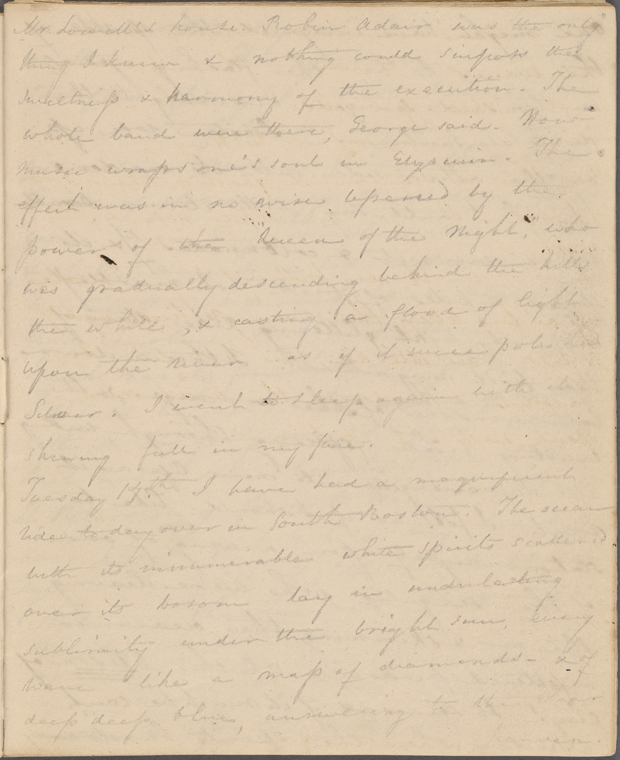 Mr. Lowell's house. Robin Adair was the only
thing I knew & nothing could surpass the
sweetness & harmony of the execution. The
whole band were there, George said. How
music wraps one's soul in Elysium. The
effect was in no wise lessened by the
power of the Queen of the Night, who
was gradually descending behind the hills
the while, & casting a flood of light
upon the river as if it were polished
Silver. I went to sleep again with she
shining full in my face.
Tuesday 14th I have had a magnificent
ride to day over in South Boston. The ocean
with its innumerable white spirits scattered
over its bosom lay in undulating
sublimity under the bright sun, every
wave like a map of diamonds - & of
deep deep blue, answering to the